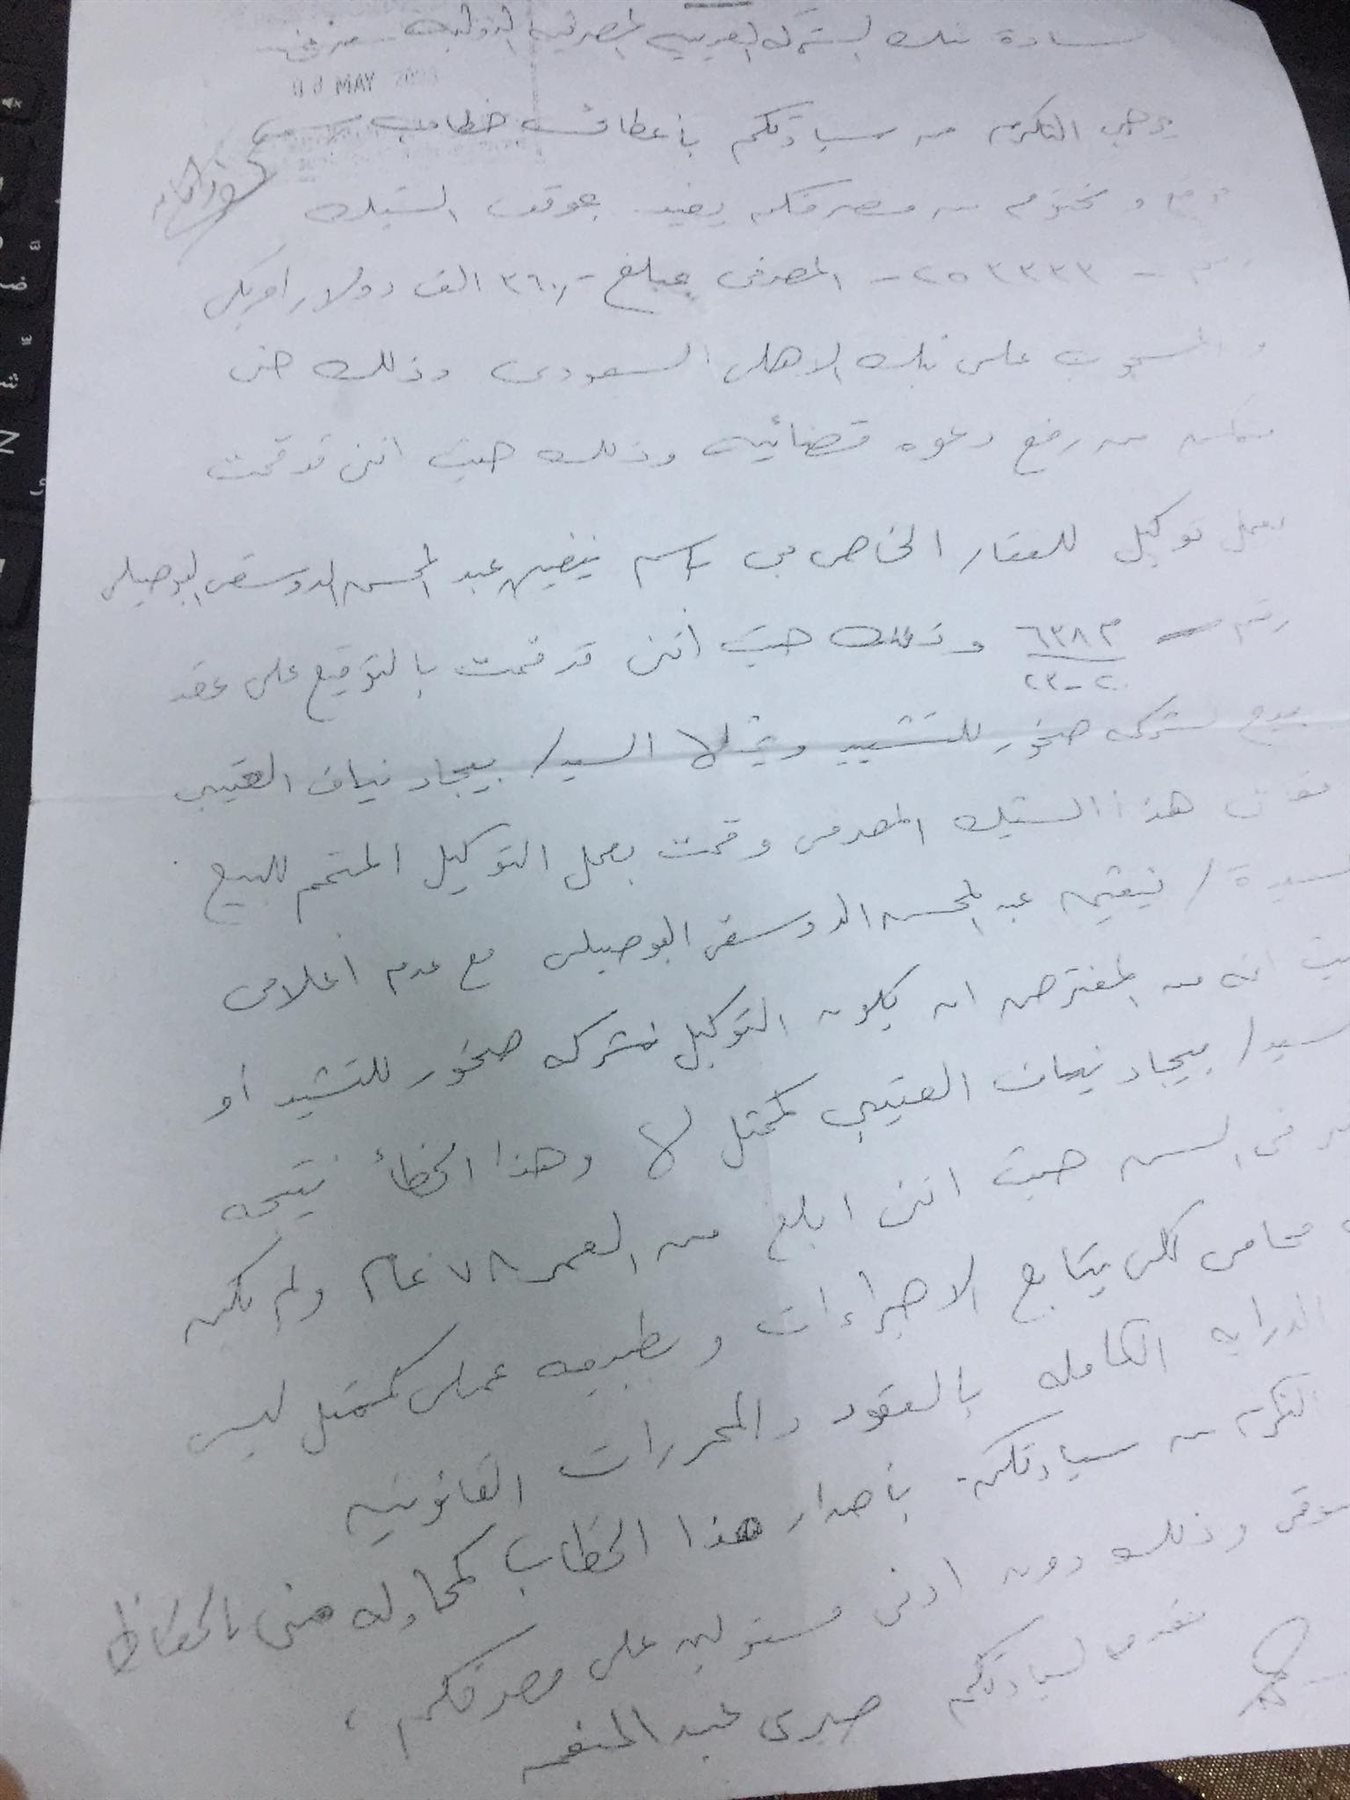 السادة بنك الشركة العربية المصرفية الدولية
MAY
يرجى التكرم من سيادتكم بأعطائى خطاب رسمى
و مختوم من مصرفكم يفيد بموقف الشيك
٢٥٣٣٣٣ - المصرفى بمبلغ -٣٦٠ الف دولار امريكى
والمسحوب على بنك الاهلى السعودى وذلك حتى
من رفع دعوه قضائيه وذلك حيث اننى قد قمت
بعمل توكيل للعقار الخاص بى بأسم نيفين عبد المحسن الدوسقى البوصيلى
رقم ٦٣٨٣ وذلك حيث أننى قد قمت بالتوقيع على عقد
٢٠٢٣
بيع لشركه صخور للتشييد ويمثلها السيد/ بيجاد نياف العتيبى
مقابل هذا الشيك المصرفى وقمت بعمل التوكيل المتمم للبيع
للسيدة / نيفين عبد المحسن الدوسقى البوصيلى مع عدم أعلامى
حيث انه من المفترض ان يكون التوكيل لشركه صخور للتشييد أو
السيد/ بيجاد نياف العتيبى كممثل لها وهذا الخطأ نتيجه
فى السن حيث اننى ابلغ من العمر ٧٨ عام ولم يكن
محامى لكى يتابع الاجراءات وبطبيعه عملى كممثل ليس
الدرايه الكامله بالعقود والمحررات القانونيه
التكرم من سيادتكم بأصدار هذا الخطاب كمحاوله منى بالحفاظ
حقوقى وذلك دون ادنى مسئوليه على مصرفكم ،
مقدمه لسيادتكم صبرى عبد المنعم